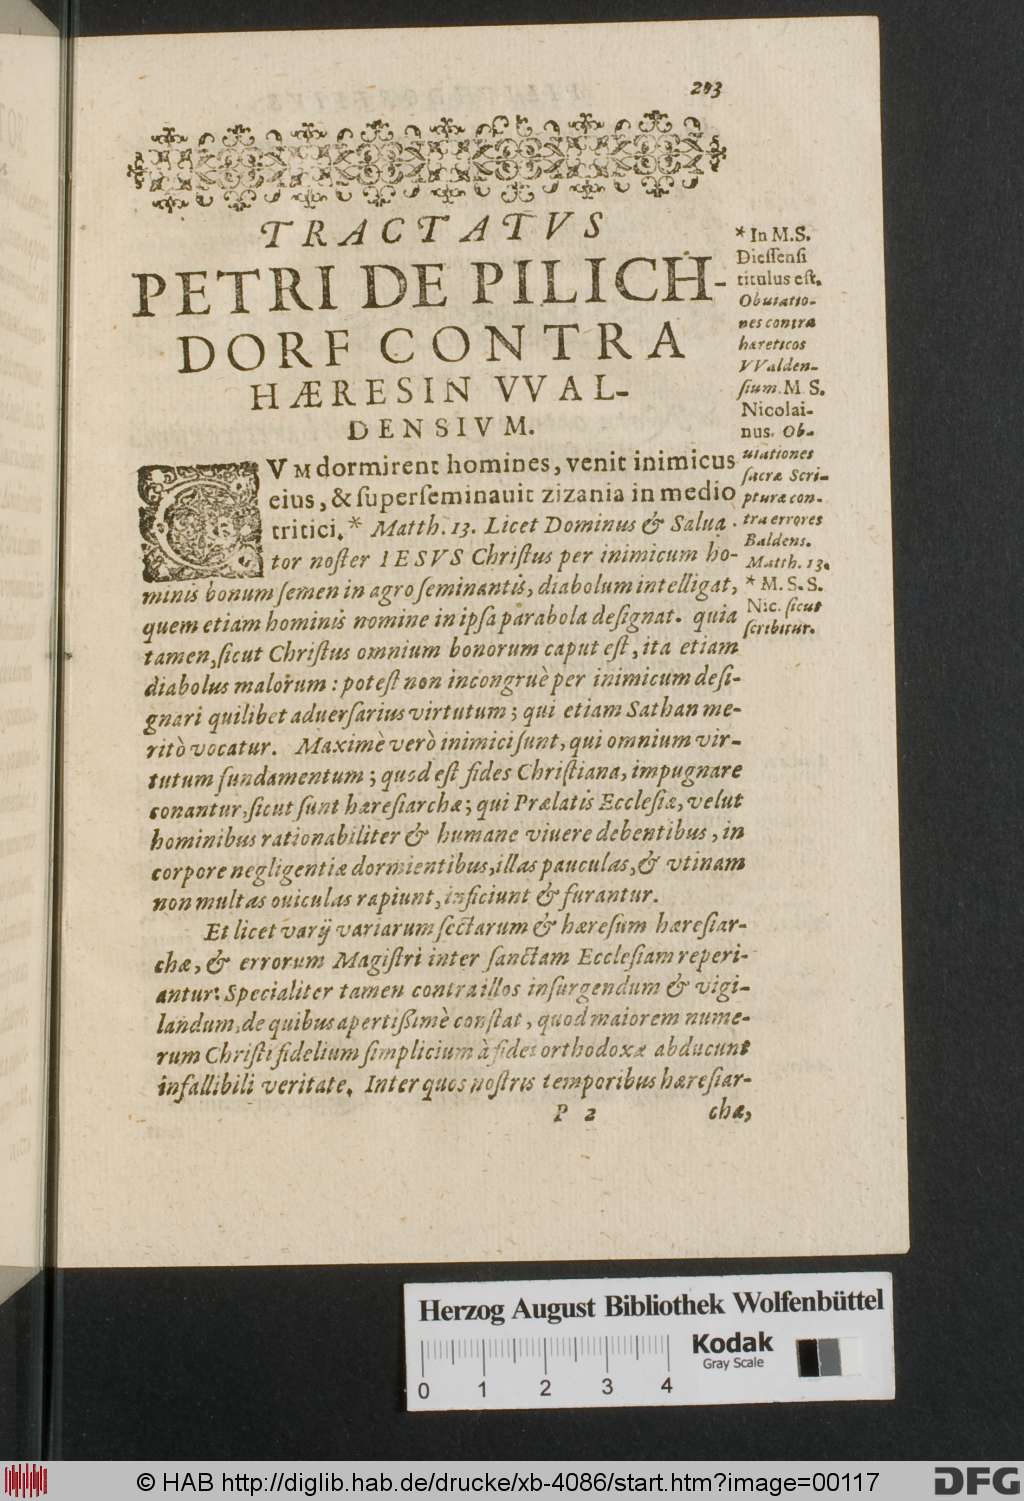 213
TRACTATVS
PETRI DE PILICH-
DORF CONTRA
HÆRESIN VVAL-
DENSIVM.
CVM dormirent homines, venit inimicus
eius, & superseminauit zizania in medio
tritici.* Matth. 13. Licet Dominus & Salua-
tor noster IESVS Christus per inimicum ho-
minis bonum semen in agro seminantis, diabolum intelligat,
quem etiam hominis nomine in ipsa parabola designat. quia
tamen, sicut Christus omnium bonorum caput est, ita etiam
diabolus malorum: potest non incongruè per inimicum desi-
gnari quilibet aduersarius virtutum; qui etiam Sathan me-
ritò vocatur. Maximè verò inimici sunt, qui omnium vir-
tutum fundamentum; quod est fides Christiana, impugnare
conantur, sicut sunt hæresiarchæ; qui Prælatis Ecclesiæ, velut
hominibus rationabiliter & humane viuere debentibus, in
corpore negligentiæ dormientibus, illas pauculas, & vtinam
non multas ouiculas rapiunt, inficiunt & furantur.
Et licet varij variarum sectarum & hæresum hæresiar-
chæ, & errorum Magistri inter sanctam Ecclesiam reperi-
antur: Specialiter tamen contra illos insurgendum & vigi-
landum, de quibus apertißimè constat, quod maiorem nume-
rum Christi fidelium simplicium à fidei orthodoxæ abducunt
infallibili veritate. Inter quos nostris temporibus hæresiar-
P 2 chæ,
* In M.S.
Diessensi
titulus est.
Obuiatio-
nes contra
hæreticos
VValden-
sium. M. S.
Nicolai-
nus. Ob-
uiationes
sacræ Scri-
pturæ con-
tra errores
Baldens.
Matth. 13.
* M. S. S.
Nic. sicut
scribitur.
Herzog August Bibliothek Wolfenbüttel
Kodak
Gray Scale
0 1 2 3 4
© HAB http://diglib.hab.de/drucke/xb-4086/start.htm?image=00117
DFG